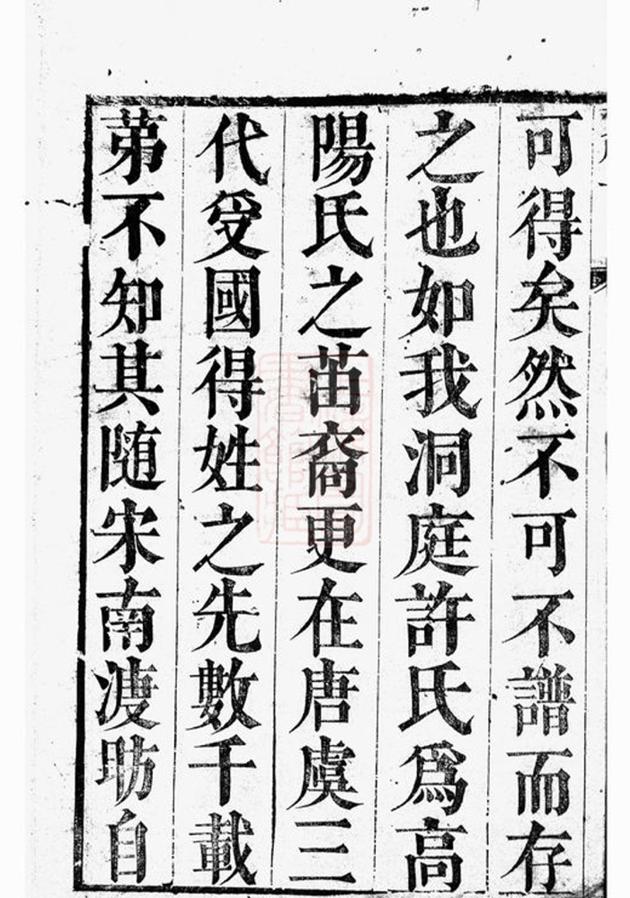 可得矣然不可不譜而存
之也如我洞庭許氏爲高
陽氏之苗裔更在唐虞三
代受國得姓之先數千載
苐不知其随宋南渡昉自